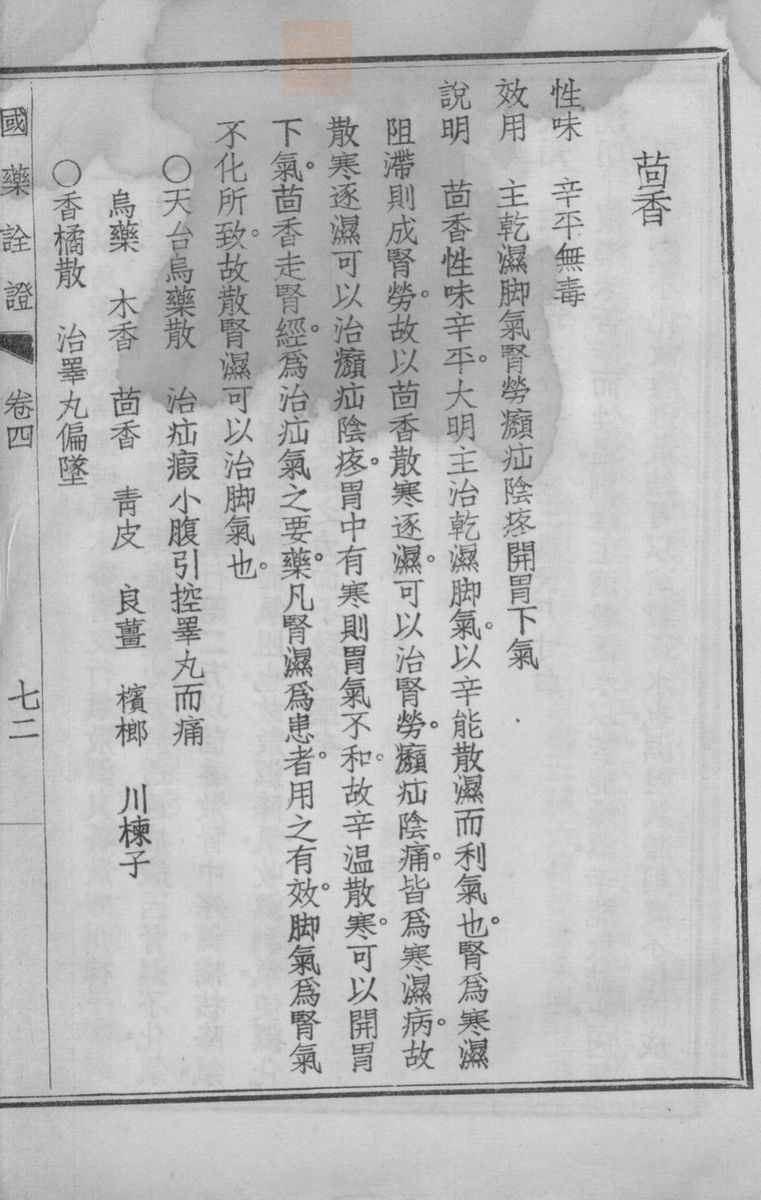 茴香
性味　辛平無毒
效用　主乾濕脚氣腎勞㿗疝陰疼開胃下氣
說明　茴香性味辛平。大明主治乾濕脚氣。以辛能散濕而利氣也。腎爲寒濕
阻滯則成腎勞。故以茴香散寒逐濕。可以治腎勞。㿗疝陰痛。皆爲寒濕病。故
散寒逐濕可以治㿗疝陰疼。胃中有寒則胃氣不和。故辛温散寒。可以開胃
下氣。茴香走腎經。爲治疝氣之要藥。凡腎濕爲患者。用之有效。脚氣爲腎氣
不化所致。故散腎濕可以治脚氣也。
○天台烏藥散　治疝瘕小腹引控睪丸而痛
烏藥　木香　茴香　靑皮　良薑　檳榔　川楝子
○香橘散　治睪丸偏墜
國藥詮證　卷四　七二